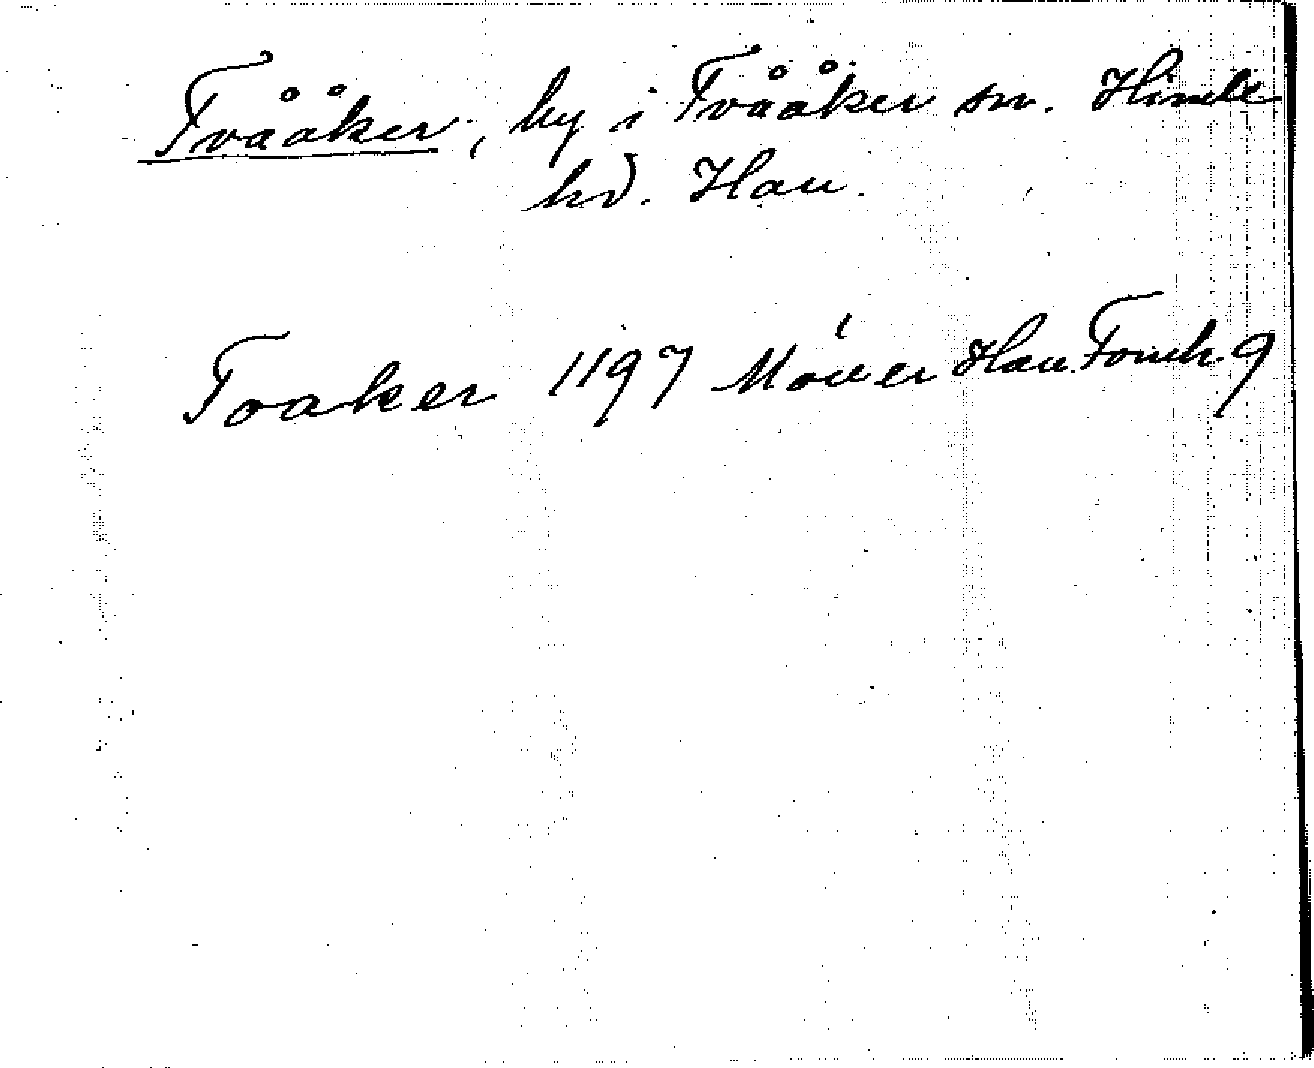 Tvååker, by i Tvååker sn. Himle
hd. Hau.
Toaker 1197 Móller Hau. Fornh. 9